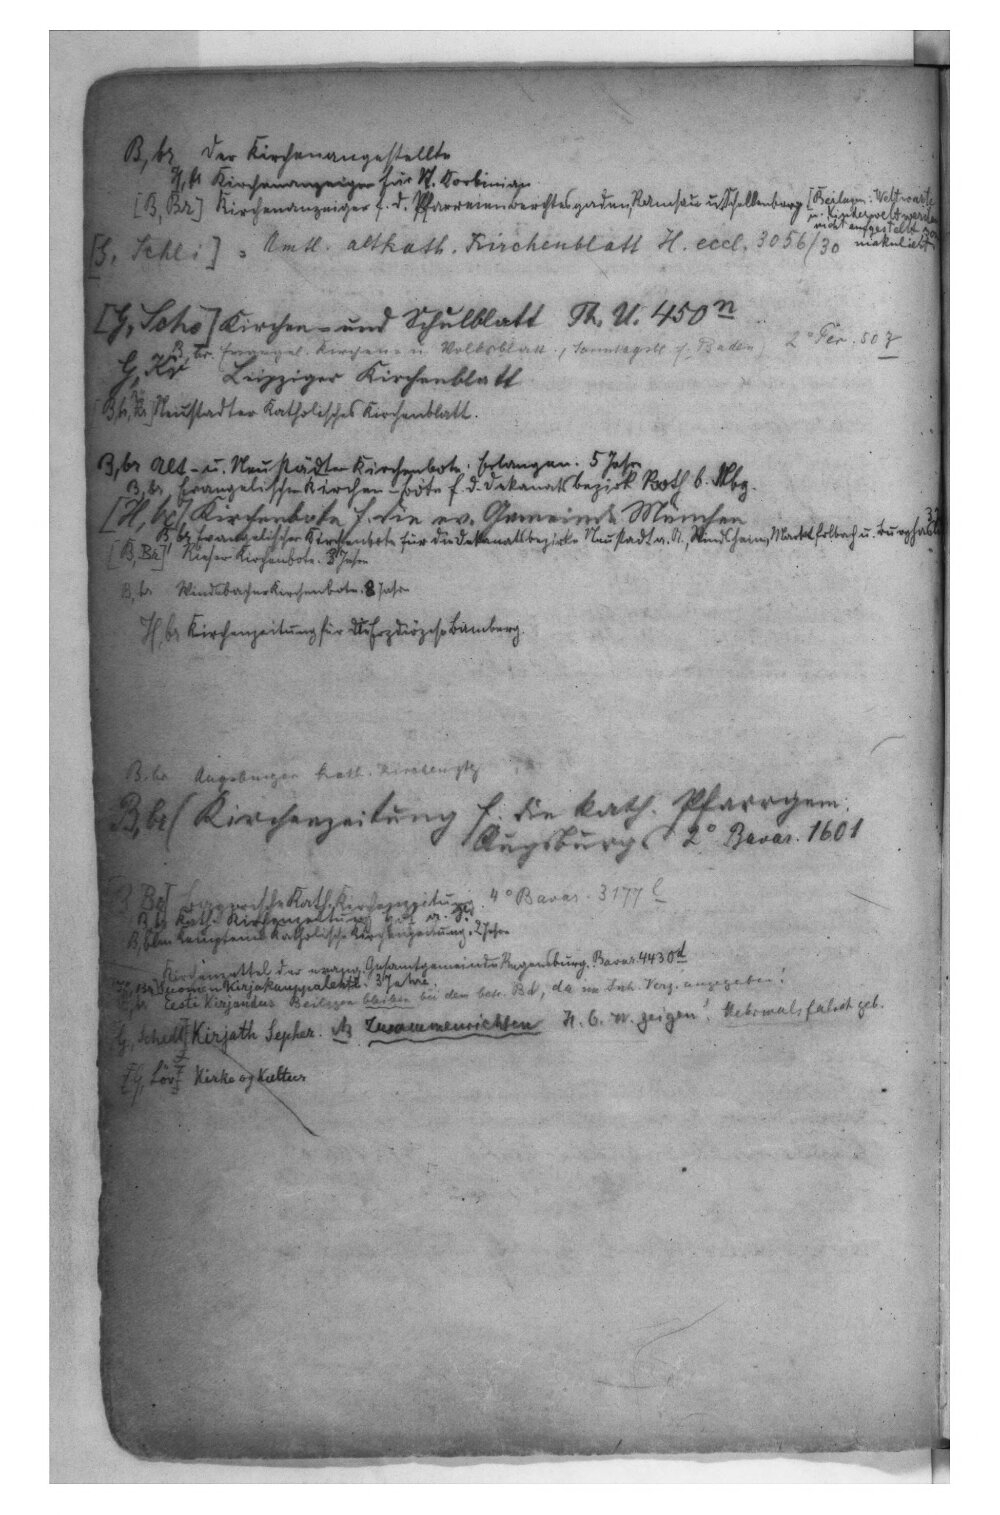 B, br Der Kirchenangestellte
H, br Kirchenanzeiger für St. Korbinian
[B, Br] Kirchenanzeiger f. d. Pfarreien Berchtesgaden, Ramsau u. Schellenberg [Beilagen: Weltwarte
u. Kinderwelt werden
nicht aufgestellt
makuliert]
[G, Schli] Amtl. altkath. Kirchenblatt H. eccl. 3056/30
[G, Scho] Kirchen- und Schulblatt Th. U. 450 n
B, br. Evangel. Kirchen- u. Volksblatt, (Sonntagsbl. f. Baden) 2° Per. 50 z
G, Kr Leipziger Kirchenblatt
Neustadter Katholisches Kirchenblatt.
B, br Alt- u. Neustädter Kirchenbote. Erlangen. 5 Jahre
B, br Evangelischer Kirchen-Bote f. d. Dekanatsbezirk Roth b. Nbg.
[H, br] Kirchenbote f. die ev. Gemeinde München
B, br Evangelischer Kirchenbote für die Dekanatsbezirke Neustadt a. A., Windsheim, Markt Erlbach u. Burghaslach
[B, Br] Rieser Kirchenbote. 3 Jahre
B, br Windsbacher Kirchenbote. 8 Jahre
H, br Kirchenzeitung für die Erzdiözese Bamberg.
B. br Augsburger kath. Kirchenztg
B, br ( Kirchenzeitung f. die kath. Pfarrgem.
Augsburgs 2° Bavar. 1601
Bayerische Kath. Kirchenzeitung. 4° Bavar. 3177 l
B, br Kath. Kirchenzeitung
Kemptens Katholische Kirchenzeitung. 2 Jahre
Kirchenzettel der evang. Gesamtgemeinde Regensburg. Bavar. 4430 d
Suomen Kirjakauppalehti. 3 Jahre.
br Eesti Kirjandus Beilagen bleiben bei dem betr. Bd, da im Inh. Verz. angegeben!
G, Schedl] Kirjath Sepher. Zusammenrichten H. G. W. zeigen! Mehrmals falsch geb.
[G, Löv] Kirke og Kultur